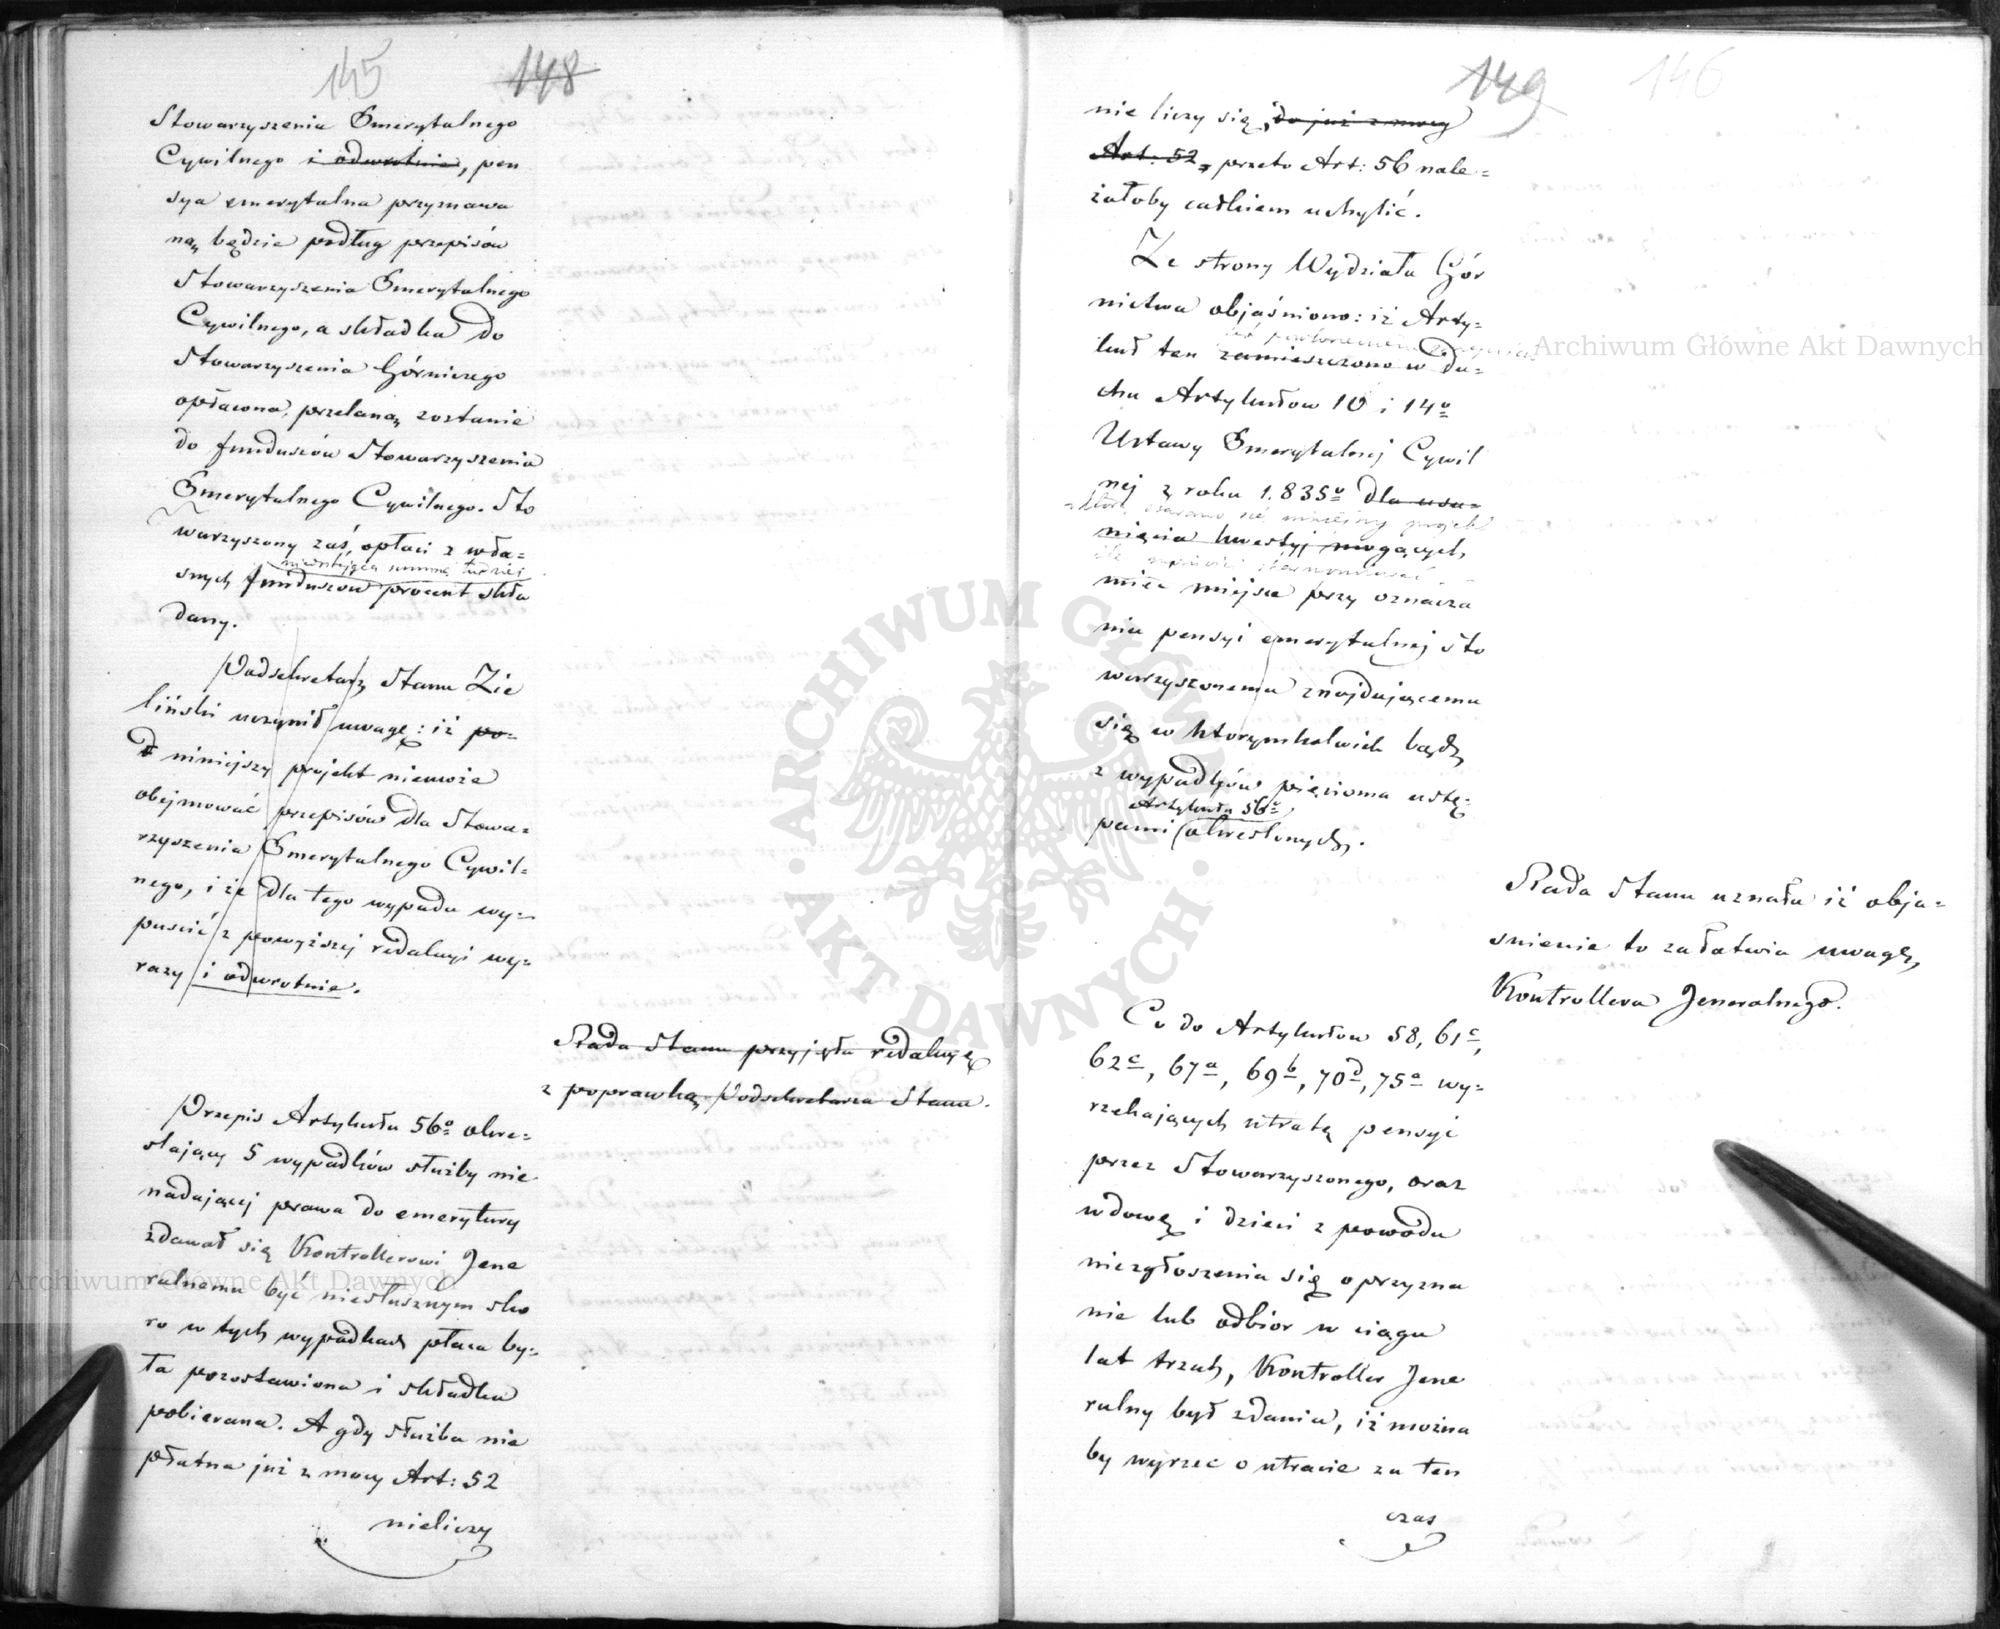 145 148
Stowarzyszenia Emerytalnego
Cywilnego i odwrotnie, pen
sya emerytalna przyznawa
ną będzie podług przepisów
Stowarzyszenia Emerytalnego
Cywilnego, a składka do
Stowarzyszenia Górniczego
opłacona, przelaną zostanie
do funduszów Stowarzyszenia
Emerytalnego Cywilnego. Sto
warzyszony zaś, opłaci z wła=
niedostającą summę tudzież
snych funduszów procent skła
dany.
Podsekretarz Stanu Zie
liński uczynił uwagę: iż po=
niniejszy projekt niemoże
obejmować przepisów dla Stowa=
rzyszenia Emerytalnego Cywil=
nego, i że dla tego wypada wy=
puścić z powyższej redakcyi wy=
razy i odwrotnie.
Rada Stanu przyjęła redakcyę
z poprawką Podsekretarza Stanu.
Przepis Artykułu 56º okre=
slający 5 wypadków służby nie
nadającej prawa do emerytury
zdawał się Kontrollerowi Jene
ralnemu być niesłusznym sko
ro w tych wypadkach płaca by=
ła pozostawiona i składka
pobierana. A gdy służba nie
płatna już z mocy Art: 52
nieliczy
149 146
nie liczy się, do już z mocy
Art: 52, przeto Art: 56 nale=
żałoby całkiem uchylić.
Ze strony Wydziału Gór
nictwa objaśniono: iż Arty=
jest powtórzeniem
kuł ten zamieszczono w Du=
chu Artykułow 10 i 14º
Ustawy Emerytalnej Cywil
nej z roku 1835º dla usu=
starano się niniejszy projekt
nięcia kwestyj mogących
mieć miejsce przy oznacza
niu pensyi emerytalnej sto
warzyszonemu znajdującemu
się w ktorymkolwiek bądź
z wypadków pięcioma ustę=
Artykułu 56º
pami okreslonych.
Rada Stanu uznała iż obja=
snienie to załatwia uwagę,
Kontrollera Jeneralnego.
Co do Artykułow 58, 61c,
62c, 67a, 69b, 70d, 75a wy=
rzekających utratę pensyi
przez Stowarzyszonego, oraz
wdowę i dzieci z powodu
niezgłoszenia się o przyzna
nie lub odbior w ciągu
lat trzech, Kontroller Jene
ralny był zdania, iż można
by wyrzec o utracie za ten
czas
Archiwum Główne Akt Dawnych
Archiwum Główne Akt Dawnych
ARCHIWUM GŁÓWNE AKT DAWNYCH